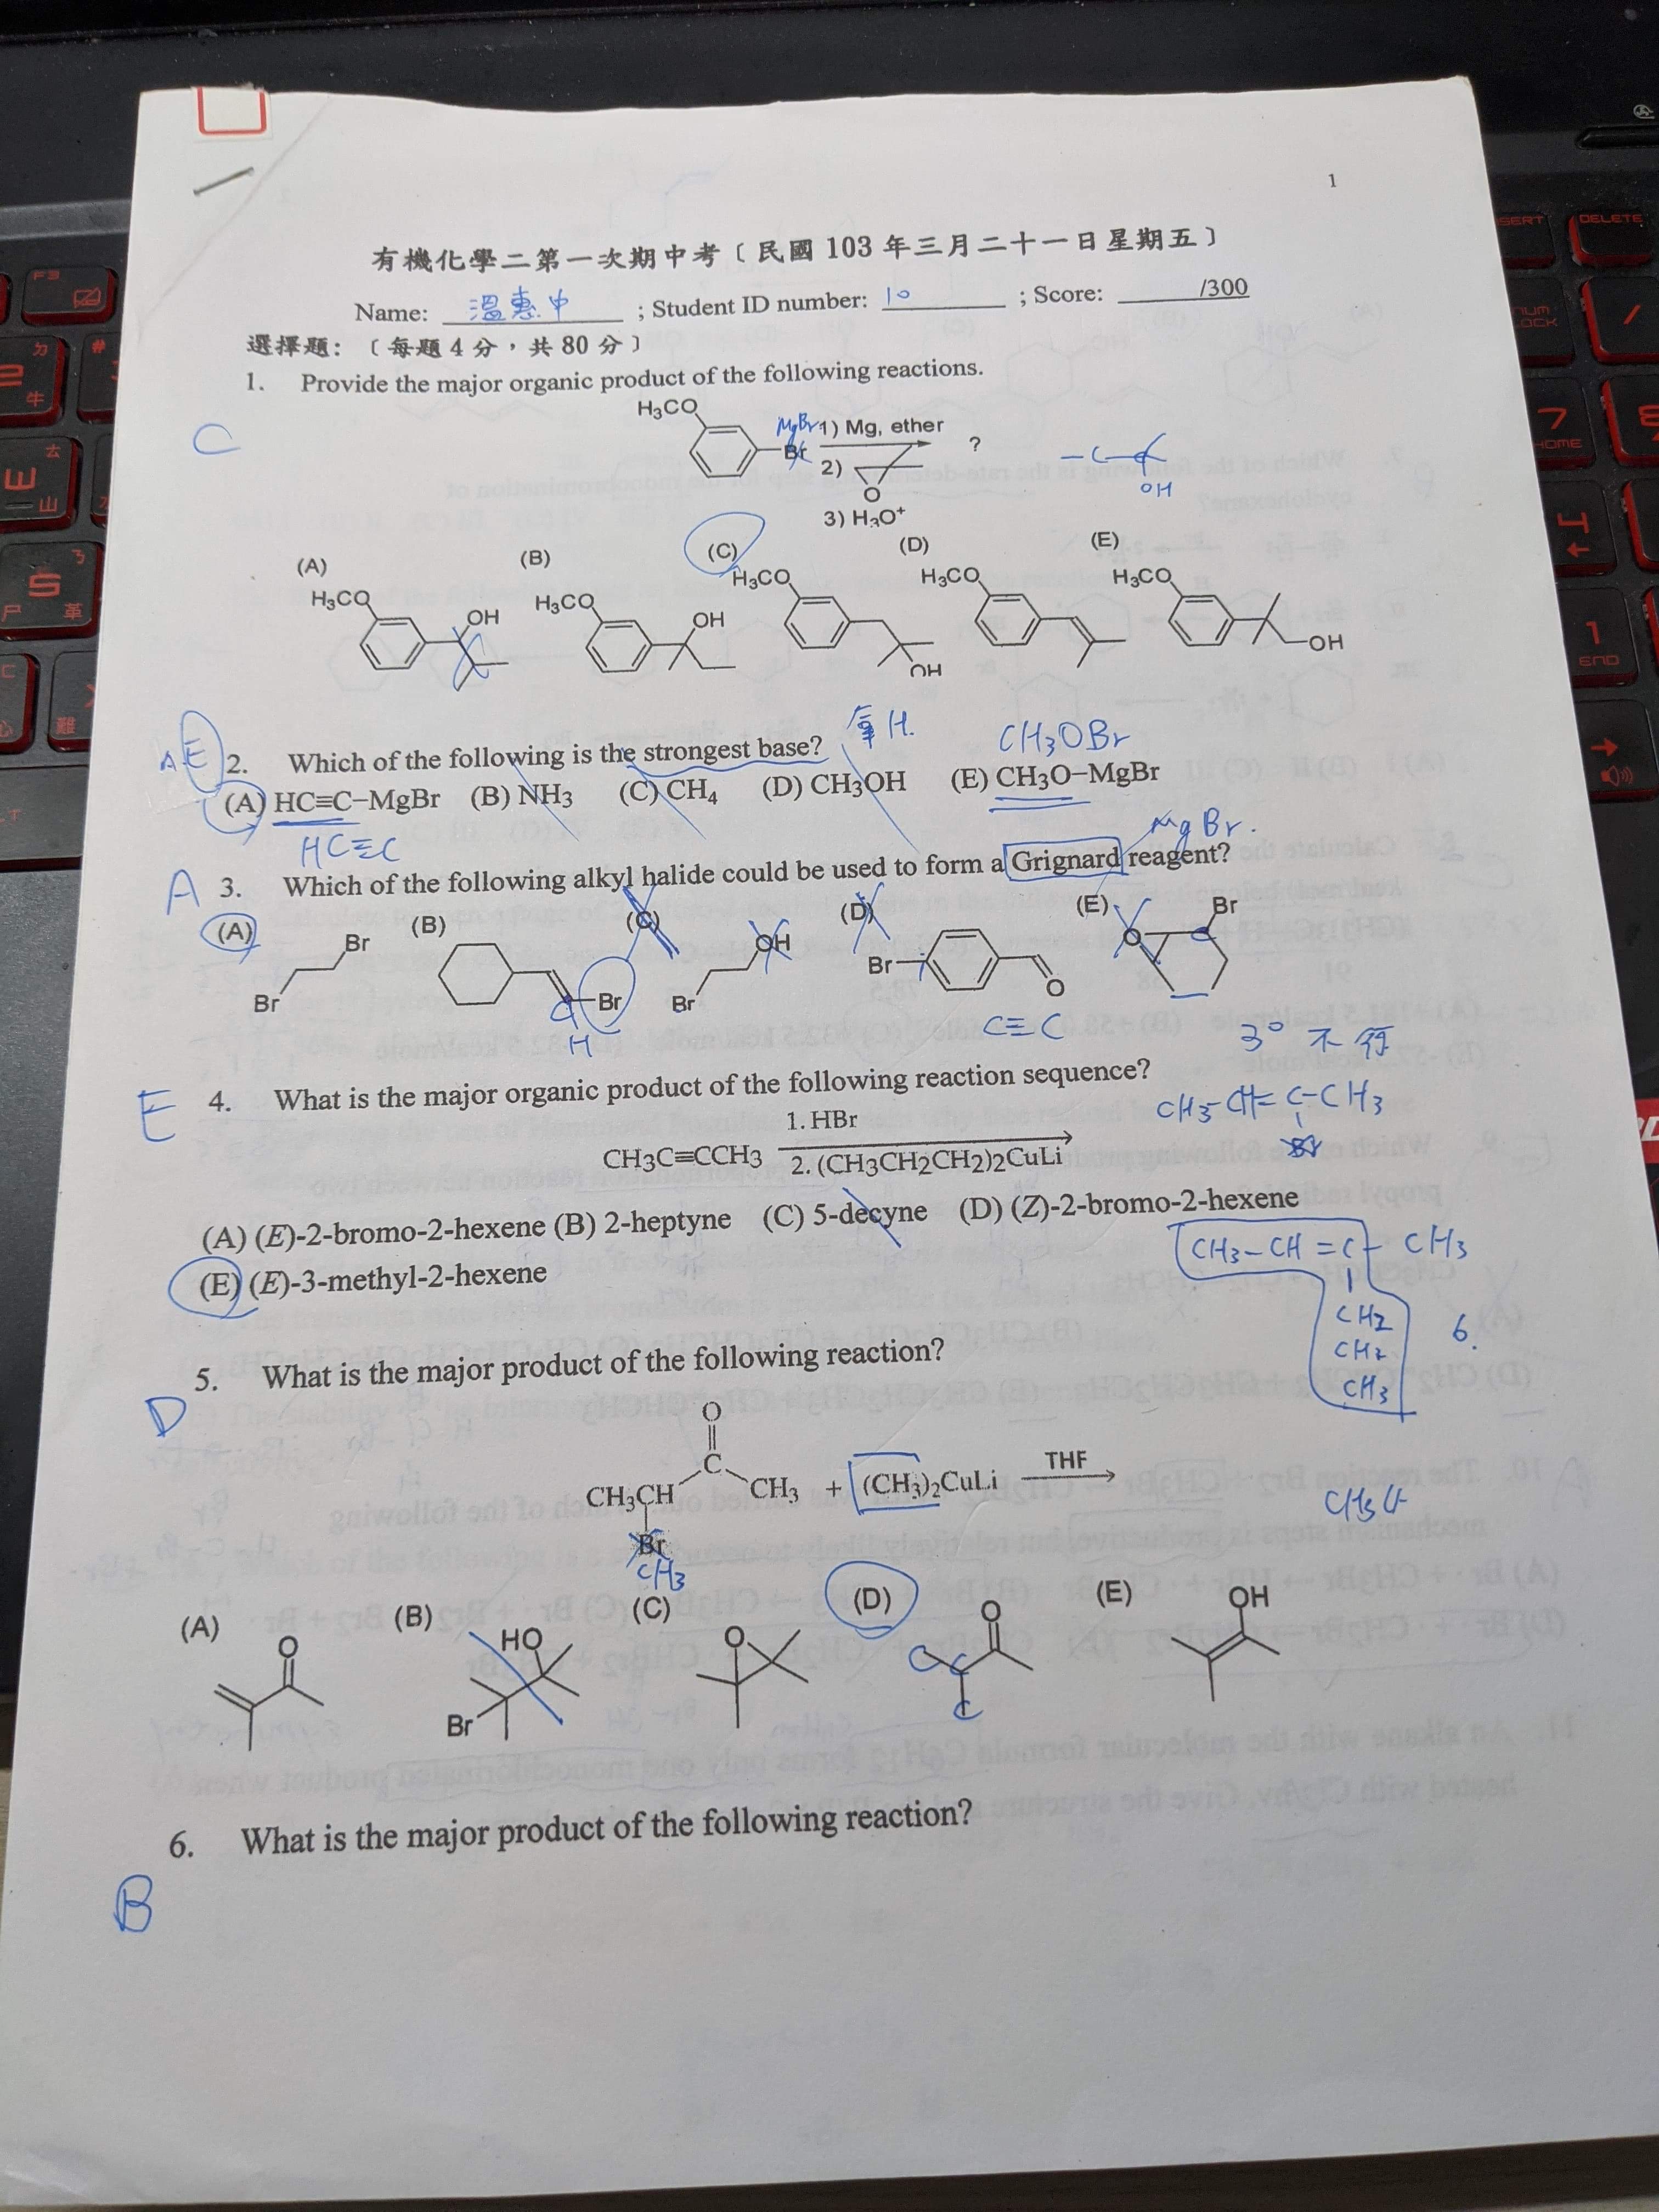 1
有機化學二第一次期中考〔民國 103 年三月二十一日星期五〕
Name: 溫惠中 ; Student ID number: 10 ; Score: /300
選擇題:〔每題 4 分，共 80 分〕
C
1. Provide the major organic product of the following reactions.
H3CO
MgBr
Br
1) Mg, ether
2)
O
3) H3O+
?
-C-C
OH
(A)
H3CO
OH
(B)
H3CO
OH
(C)
H3CO
OH
(D)
H3CO
(E)
H3CO
OH
氫 H.
CH3OBr
A E 2. Which of the following is the strongest base?
(A) HC≡C−MgBr (B) NH3 (C) CH4 (D) CH3OH (E) CH3O−MgBr
HC≡C
MgBr.
A 3. Which of the following alkyl halide could be used to form a Grignard reagent?
(A)
Br
Br
(B)
Br
C
H
(C)
OH
Br
(D)
Br
O
C≡C
(E)
O
Br
3° 不行
E 4. What is the major organic product of the following reaction sequence?
CH3-CH=C-CH3
Br
CH3C≡CCH3
1. HBr
2. (CH3CH2CH2)2CuLi
(A) (E)-2-bromo-2-hexene (B) 2-heptyne (C) 5-decyne (D) (Z)-2-bromo-2-hexene
(E) (E)-3-methyl-2-hexene
CH3-CH=C-CH3
CH2
CH2
CH3
6.
D 5. What is the major product of the following reaction?
O
C
CH3CH CH3 + (CH3)2CuLi THF
Br
CH3
CH3
(A)
O
(B)
HO
Br
(C)
O
(D)
O
C
C
C
(E)
OH
6. What is the major product of the following reaction?
B